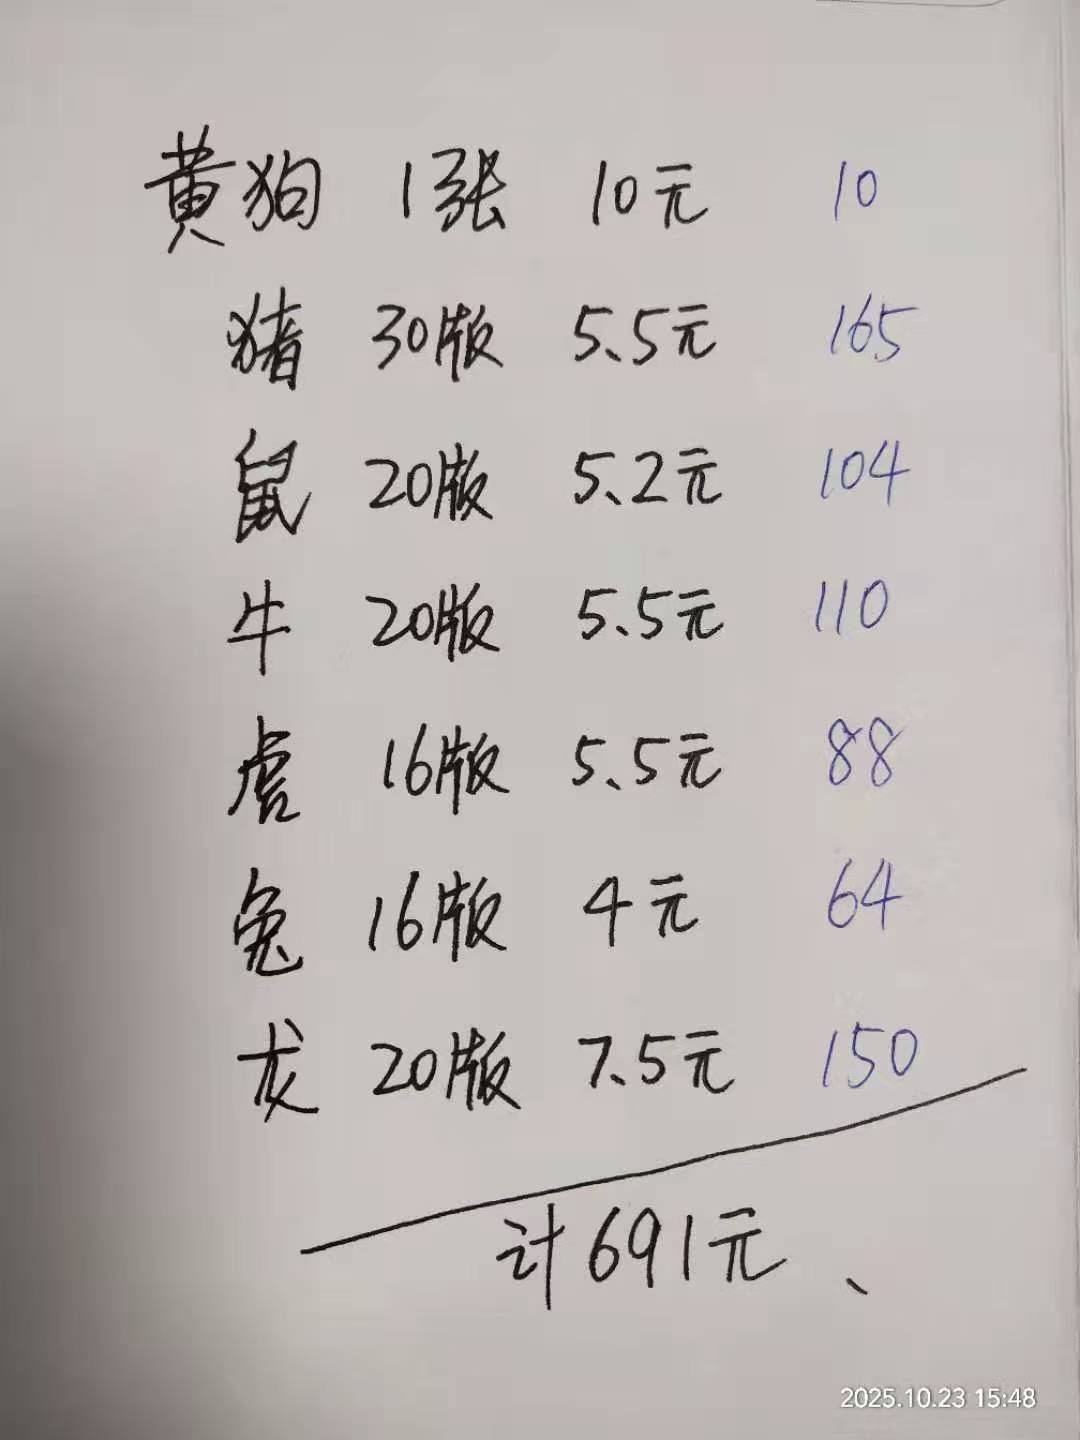 黄狗 1张 10元 10
猪 30版 5.5元 165
鼠 20版 5.2元 104
牛 20版 5.5元 110
虎 16版 5.5元 88
兔 16版 4元 64
龙 20版 7.5元 150
计691元、
2025.10.23 15:48